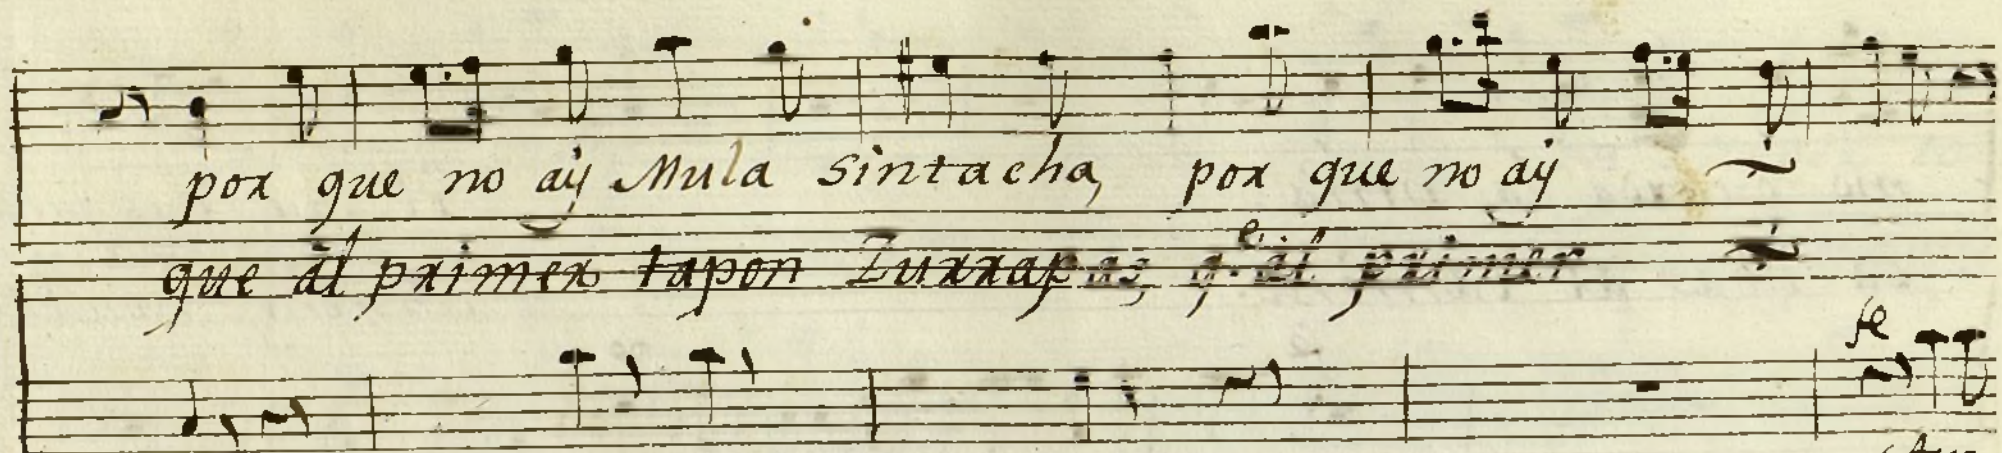 por que no aÿ Mula sintacha, por que no aÿ
que al primer tapon Zurrapas, q.e al primer
fe